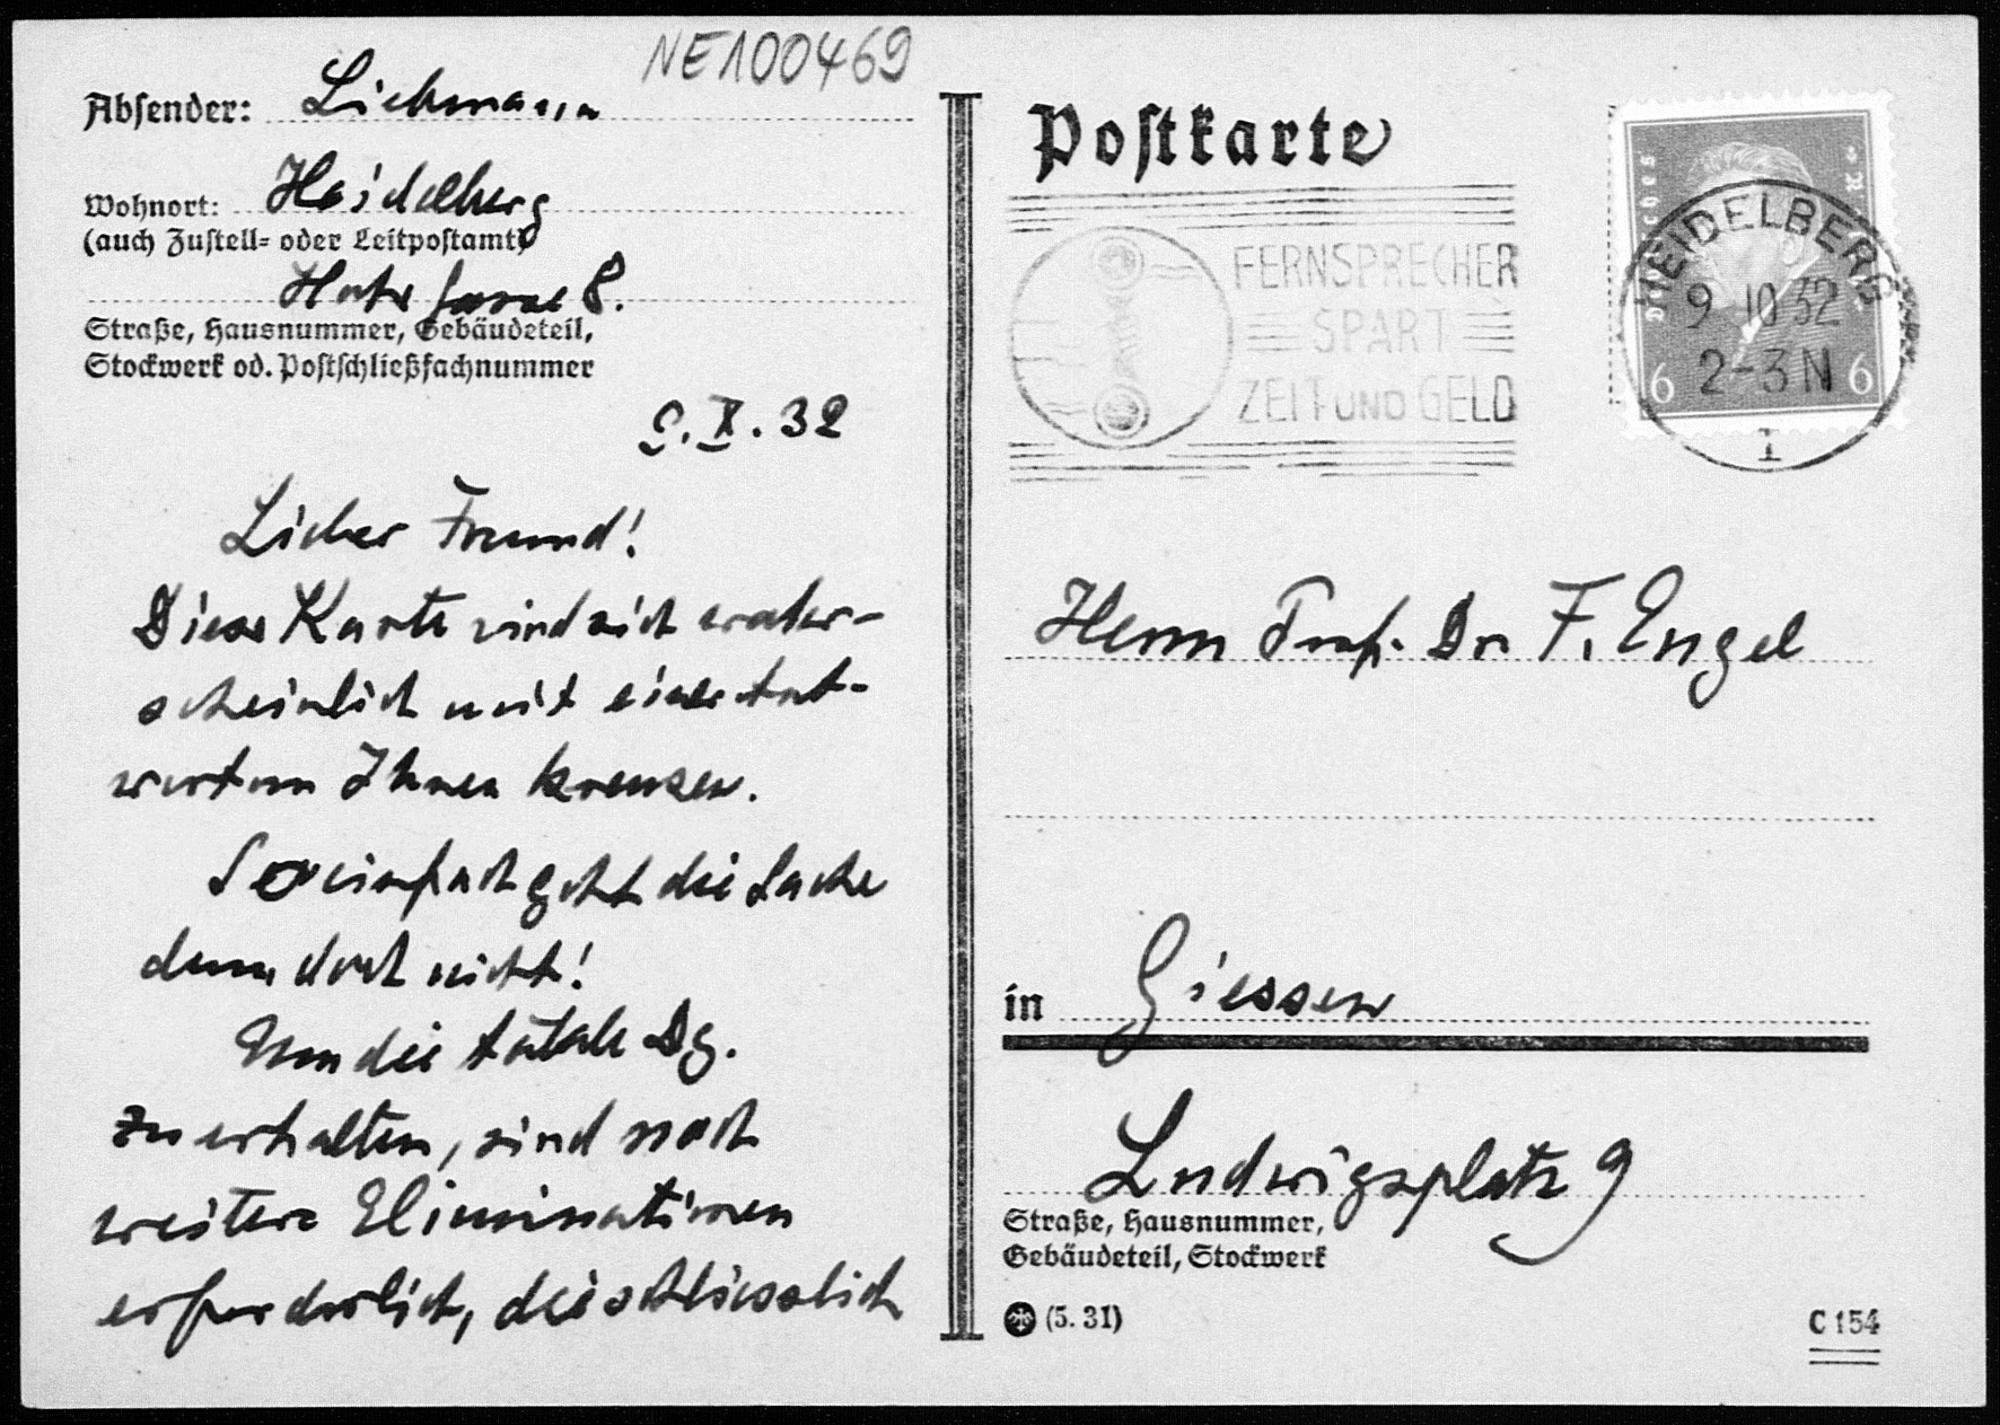 NE100469
Absender: Liebmann
Wohnort: Heidelberg
(auch Zustell= oder Leitpostamt)
8.
Straße, Hausnummer, Gebäudeteil,
Stockwerk od. Postschließfachnummer
9. X. 32
Lieber Freund!
Diese Karte wird sich wahr-
scheinlich mit einer Ant-
wort von Ihnen kreuzen.
So einfach geht die Sache
denn doch nicht!
Um die totale Dg.
zu erhalten, sind noch
weitere Eliminationen
erforderlich, die schliesslich
Postkarte
FERNSPRECHER
SPART
ZEIT UND GELD
Deutsches Reich
HEIDELBERG
9 10 32
2-3 N
6 6
1
Herrn Prof. Dr. F. Engel
in Giessen
Ludwigsplatz 9
Straße, Hausnummer,
Gebäudeteil, Stockwerk
(5. 31)
C 154